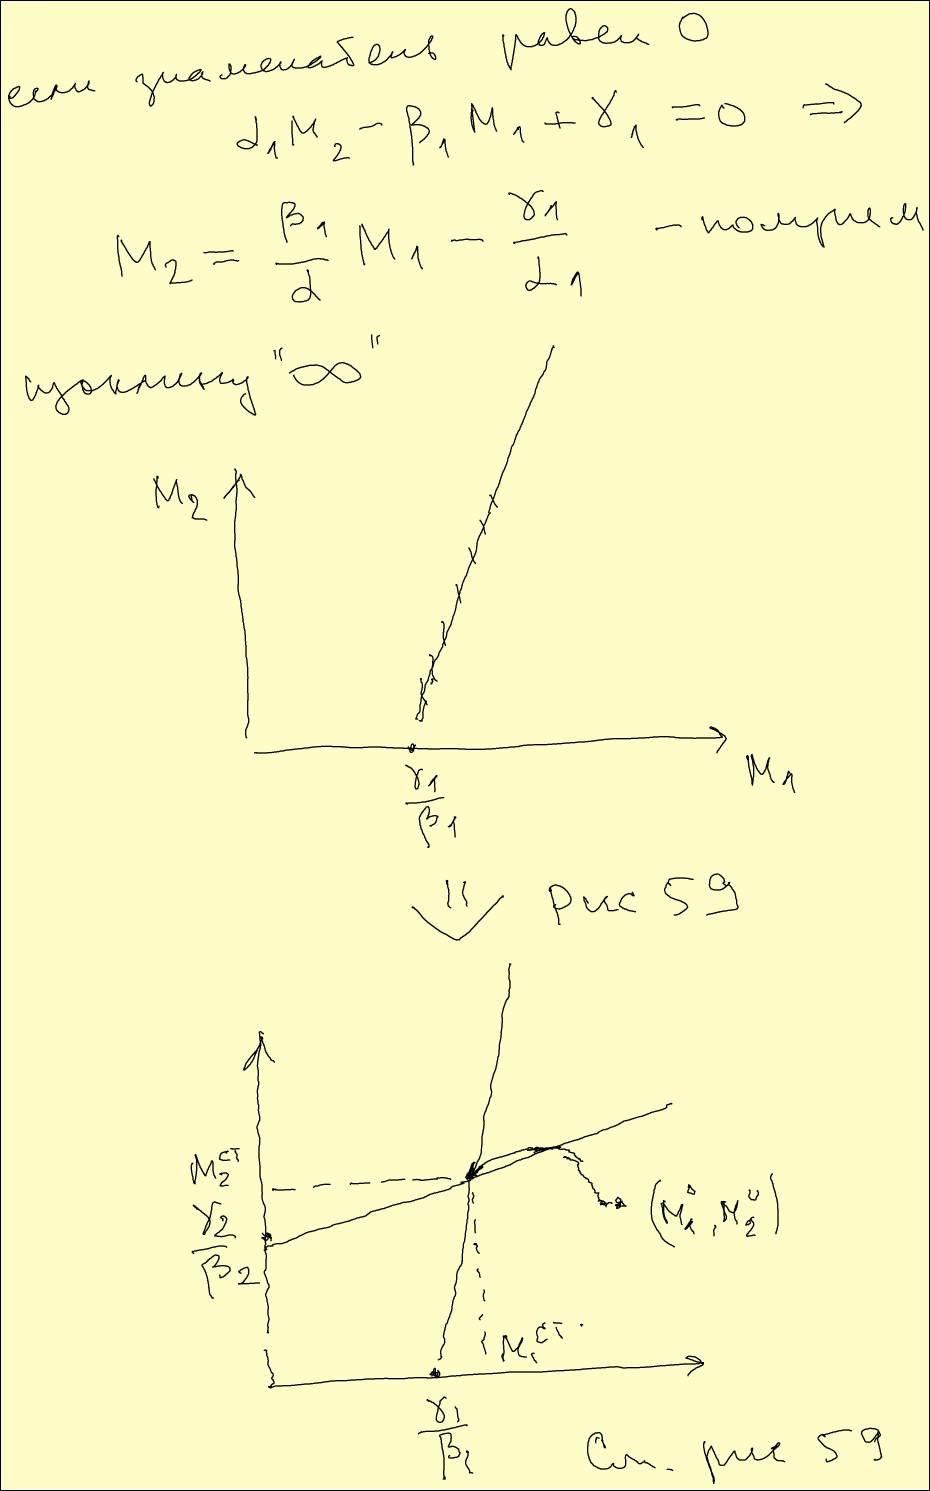 если знаменатель равен 0
α₁M₂ - β₁M₁ + γ₁ = 0 ⇒
M₂ = β₁/α M₁ - γ₁/α₁ - получаем
изоклину "∞"
M₂
M₁
γ₁/β₁
⇓ Рис 59
M₂ᶜᵀ
γ₂/β₂
(M₁⁰, M₂⁰)
M₁ᶜᵀ.
γ₁/β₁
См. рис 59